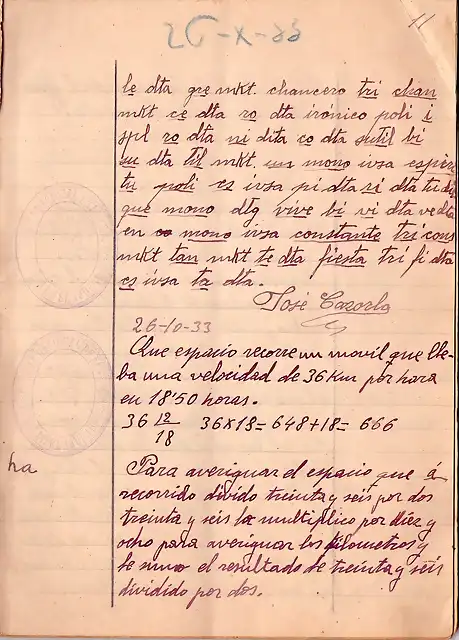 11
26-X-33
le dta gre mkt. chancero tri chan
mkt ce dta ro dta irónico poli i
spl ro dta ni dita co dta sutil bi
su dta til mkt un mono ivsa espére
tu poli es ivsa pi dta ri dta tu
que mono dtg vive bi vi dta ve dta
en mono ivsa constante tri cons
mkt tan mkt te dta fiesta tri fi dta
es ivsa ta dta.
José Cazorla
26-10-33
Que espacio recorre un movil que lle-
ba una velocidad de 36 Km por hora
en 18'50 horas.
36 |2 36x18=648+18= 666
18
Para averiguar el espacio que á
ha recorrido divido treinta y seis por dos
treinta y seis lo multiplico por diez y
ocho para averiguar los kilometros y
le sumo el resultado de treinta y seis
dividido por dos.